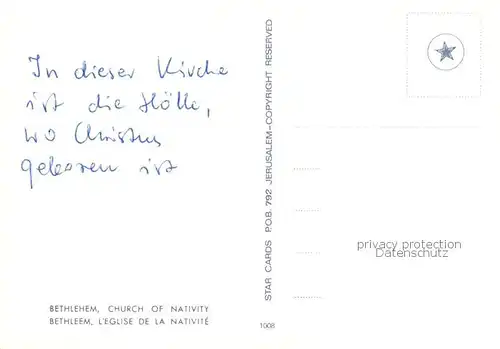 In dieser Kirche
ist die Hölle,
wo Christus
geboren ist
BETHLEHEM, CHURCH OF NATIVITY
BETHLEEM, L'EGLISE DE LA NATIVITÉ
STAR CARDS P.O.B. 792 JERUSALEM-COPYRIGHT RESERVED
1008
privacy protection
Datenschutz